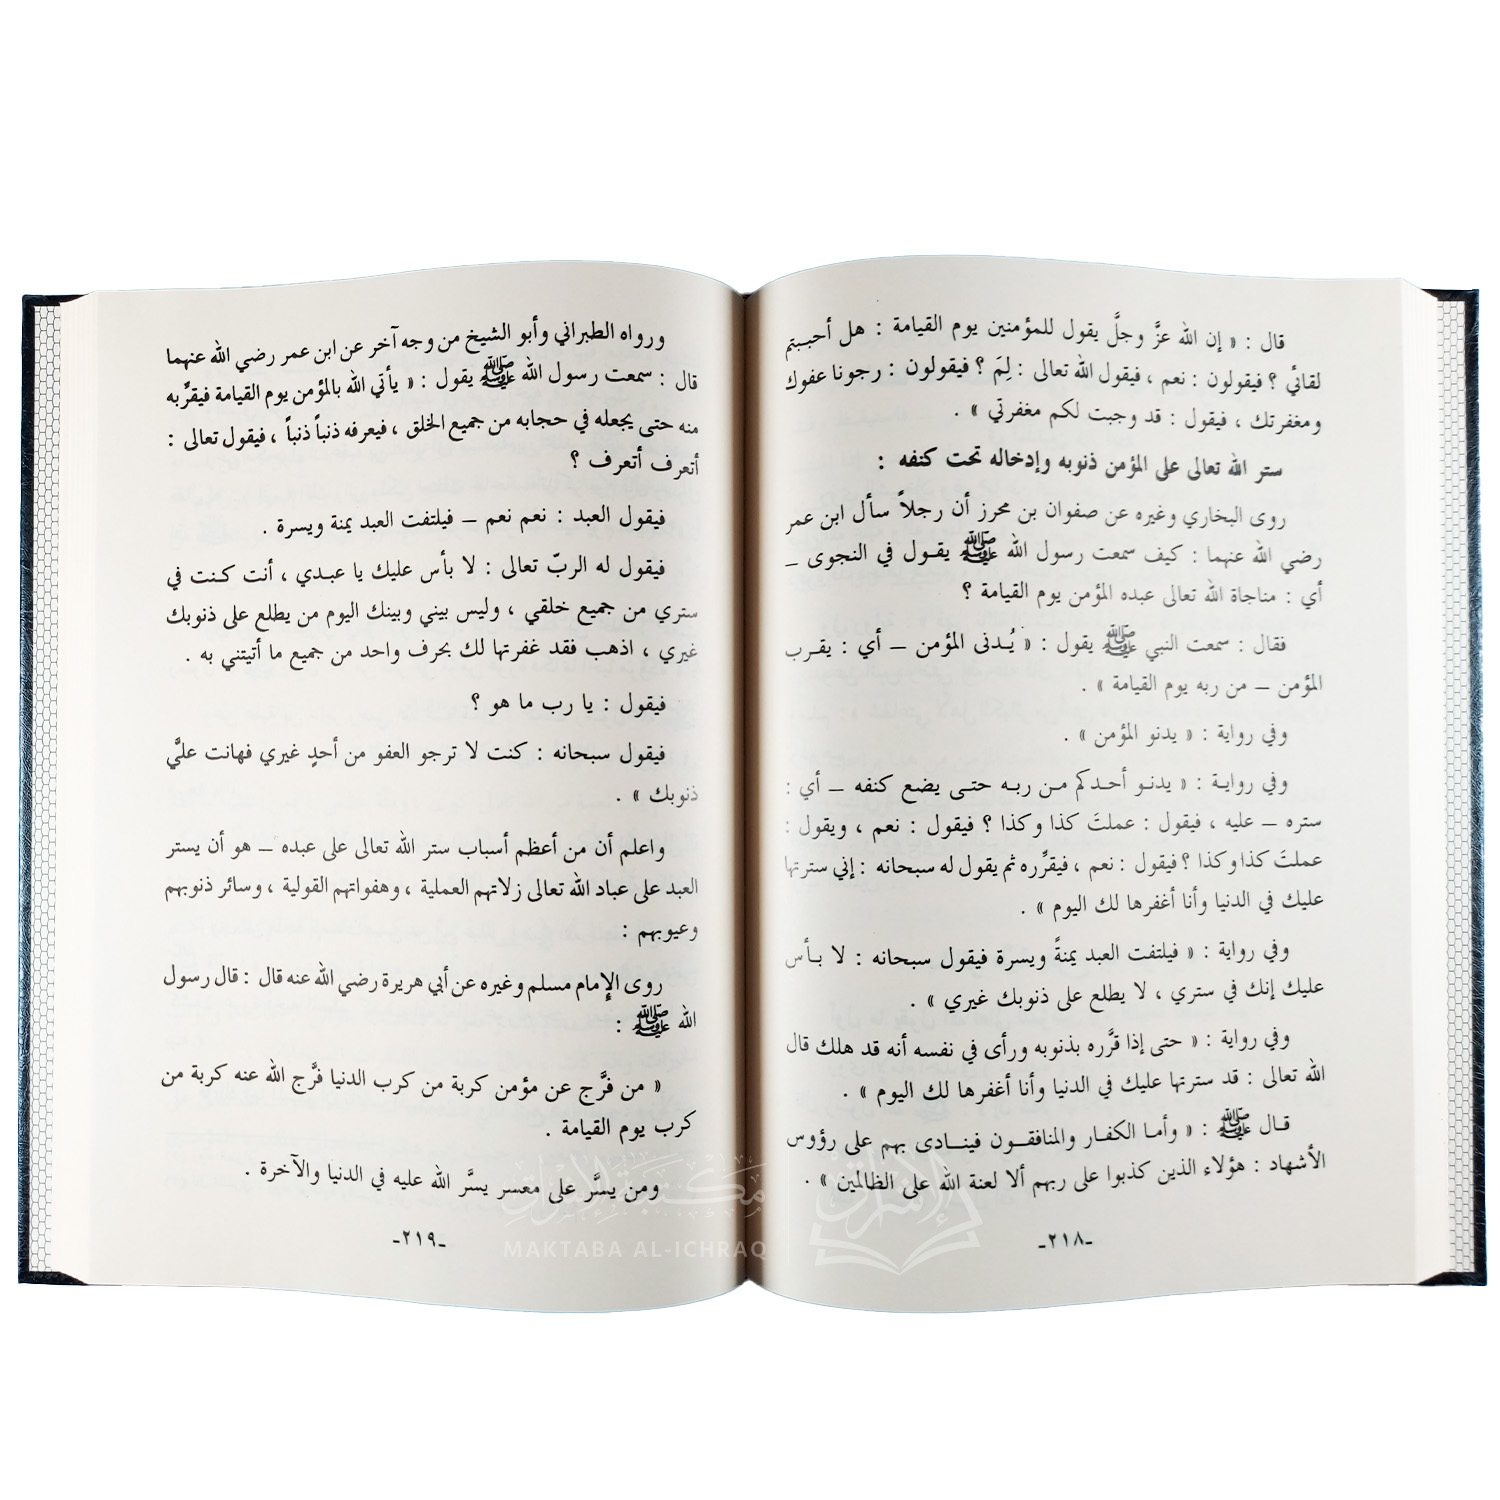 قال : « إن الله عزَّ وجلَّ يقول للمؤمنين يوم القيامة : هل أحببتم
لقائي ؟ فيقولون : نعم ، فيقول الله تعالى : لِمَ ؟ فيقولون : رجونا عفوك
ومغفرتك ، فيقول : قد وجبت لكم مغفرتي » .
ستر الله تعالى على المؤمن ذنوبه وإدخاله تحت كنفه :
روى البخاري وغيره عن صفوان بن محرز أن رجلاً سأل ابن عمر
رضي الله عنهما : كيف سمعت رسول الله ﷺ يقول في النجوى ــ
أي : مناجاة الله تعالى عبده المؤمن يوم القيامة ؟
فقال : سمعت النبي ﷺ يقول : « يُدنى المؤمن ــ أي : يقرب
المؤمن ــ من ربه يوم القيامة » .
وفي رواية : « يدنو المؤمن » .
وفي رواية : « يدنو أحدكم من ربه حتى يضع كنفه ــ أي :
ستره ــ عليه ، فيقول : عملتَ كذا وكذا ؟ فيقول : نعم ، ويقول :
عملتَ كذا وكذا ؟ فيقول : نعم ، فيقرِّره ثم يقول له سبحانه : إني سترتها
عليك في الدنيا وأنا أغفرها لك اليوم » .
وفي رواية : « فيلتفت العبد يمنةً ويسرة فيقول سبحانه : لا بأس
عليك إنك في ستري ، لا يطلع على ذنوبك غيري » .
وفي رواية : « حتى إذا قرَّره بذنوبه ورأى في نفسه أنه قد هلك قال
الله تعالى : قد سترتها عليك في الدنيا وأنا أغفرها لك اليوم » .
قال ﷺ : « وأما الكفار والمنافقون فينادى بهم على رؤوس
الأشهاد : هؤلاء الذين كذبوا على ربهم ألا لعنة الله على الظالمين » .
ـ٢١٨ـ
ورواه الطبراني وأبو الشيخ من وجه آخر عن ابن عمر رضي الله عنهما
قال : سمعت رسول الله ﷺ يقول : « يأتي الله بالمؤمن يوم القيامة فيقرِّبه
منه حتى يجعله في حجابه من جميع الخلق ، فيعرفه ذنباً ذنباً ، فيقول تعالى :
أتعرف أتعرف ؟
فيقول العبد : نعم نعم ــ فيلتفت العبد يمنة ويسرة .
فيقول له الربّ تعالى : لا بأس عليك يا عبدي ، أنت كنت في
ستري من جميع خلقي ، وليس بيني وبينك اليوم من يطلع على ذنوبك
غيري ، اذهب فقد غفرتها لك بحرف واحد من جميع ما أتيتني به .
فيقول : يا رب ما هو ؟
فيقول سبحانه : كنت لا ترجو العفو من أحدٍ غيري فهانت عليَّ
ذنوبك » .
واعلم أن من أعظم أسباب ستر الله تعالى على عبده ــ هو أن يستر
العبد على عباد الله تعالى زلاتهم العملية ، وهفواتهم القولية ، وسائر ذنوبهم
وعيوبهم :
روى الإمام مسلم وغيره عن أبي هريرة رضي الله عنه قال : قال رسول
الله ﷺ :
« من فرَّج عن مؤمن كربة من كرب الدنيا فرَّج الله عنه كربة من
كرب يوم القيامة .
ومن يسَّر على معسر يسَّر الله عليه في الدنيا والآخرة .
ـ٢١٩ـ
مكتبة الإشراق
MAKTABA AL-ICHRAQ
الإشراق